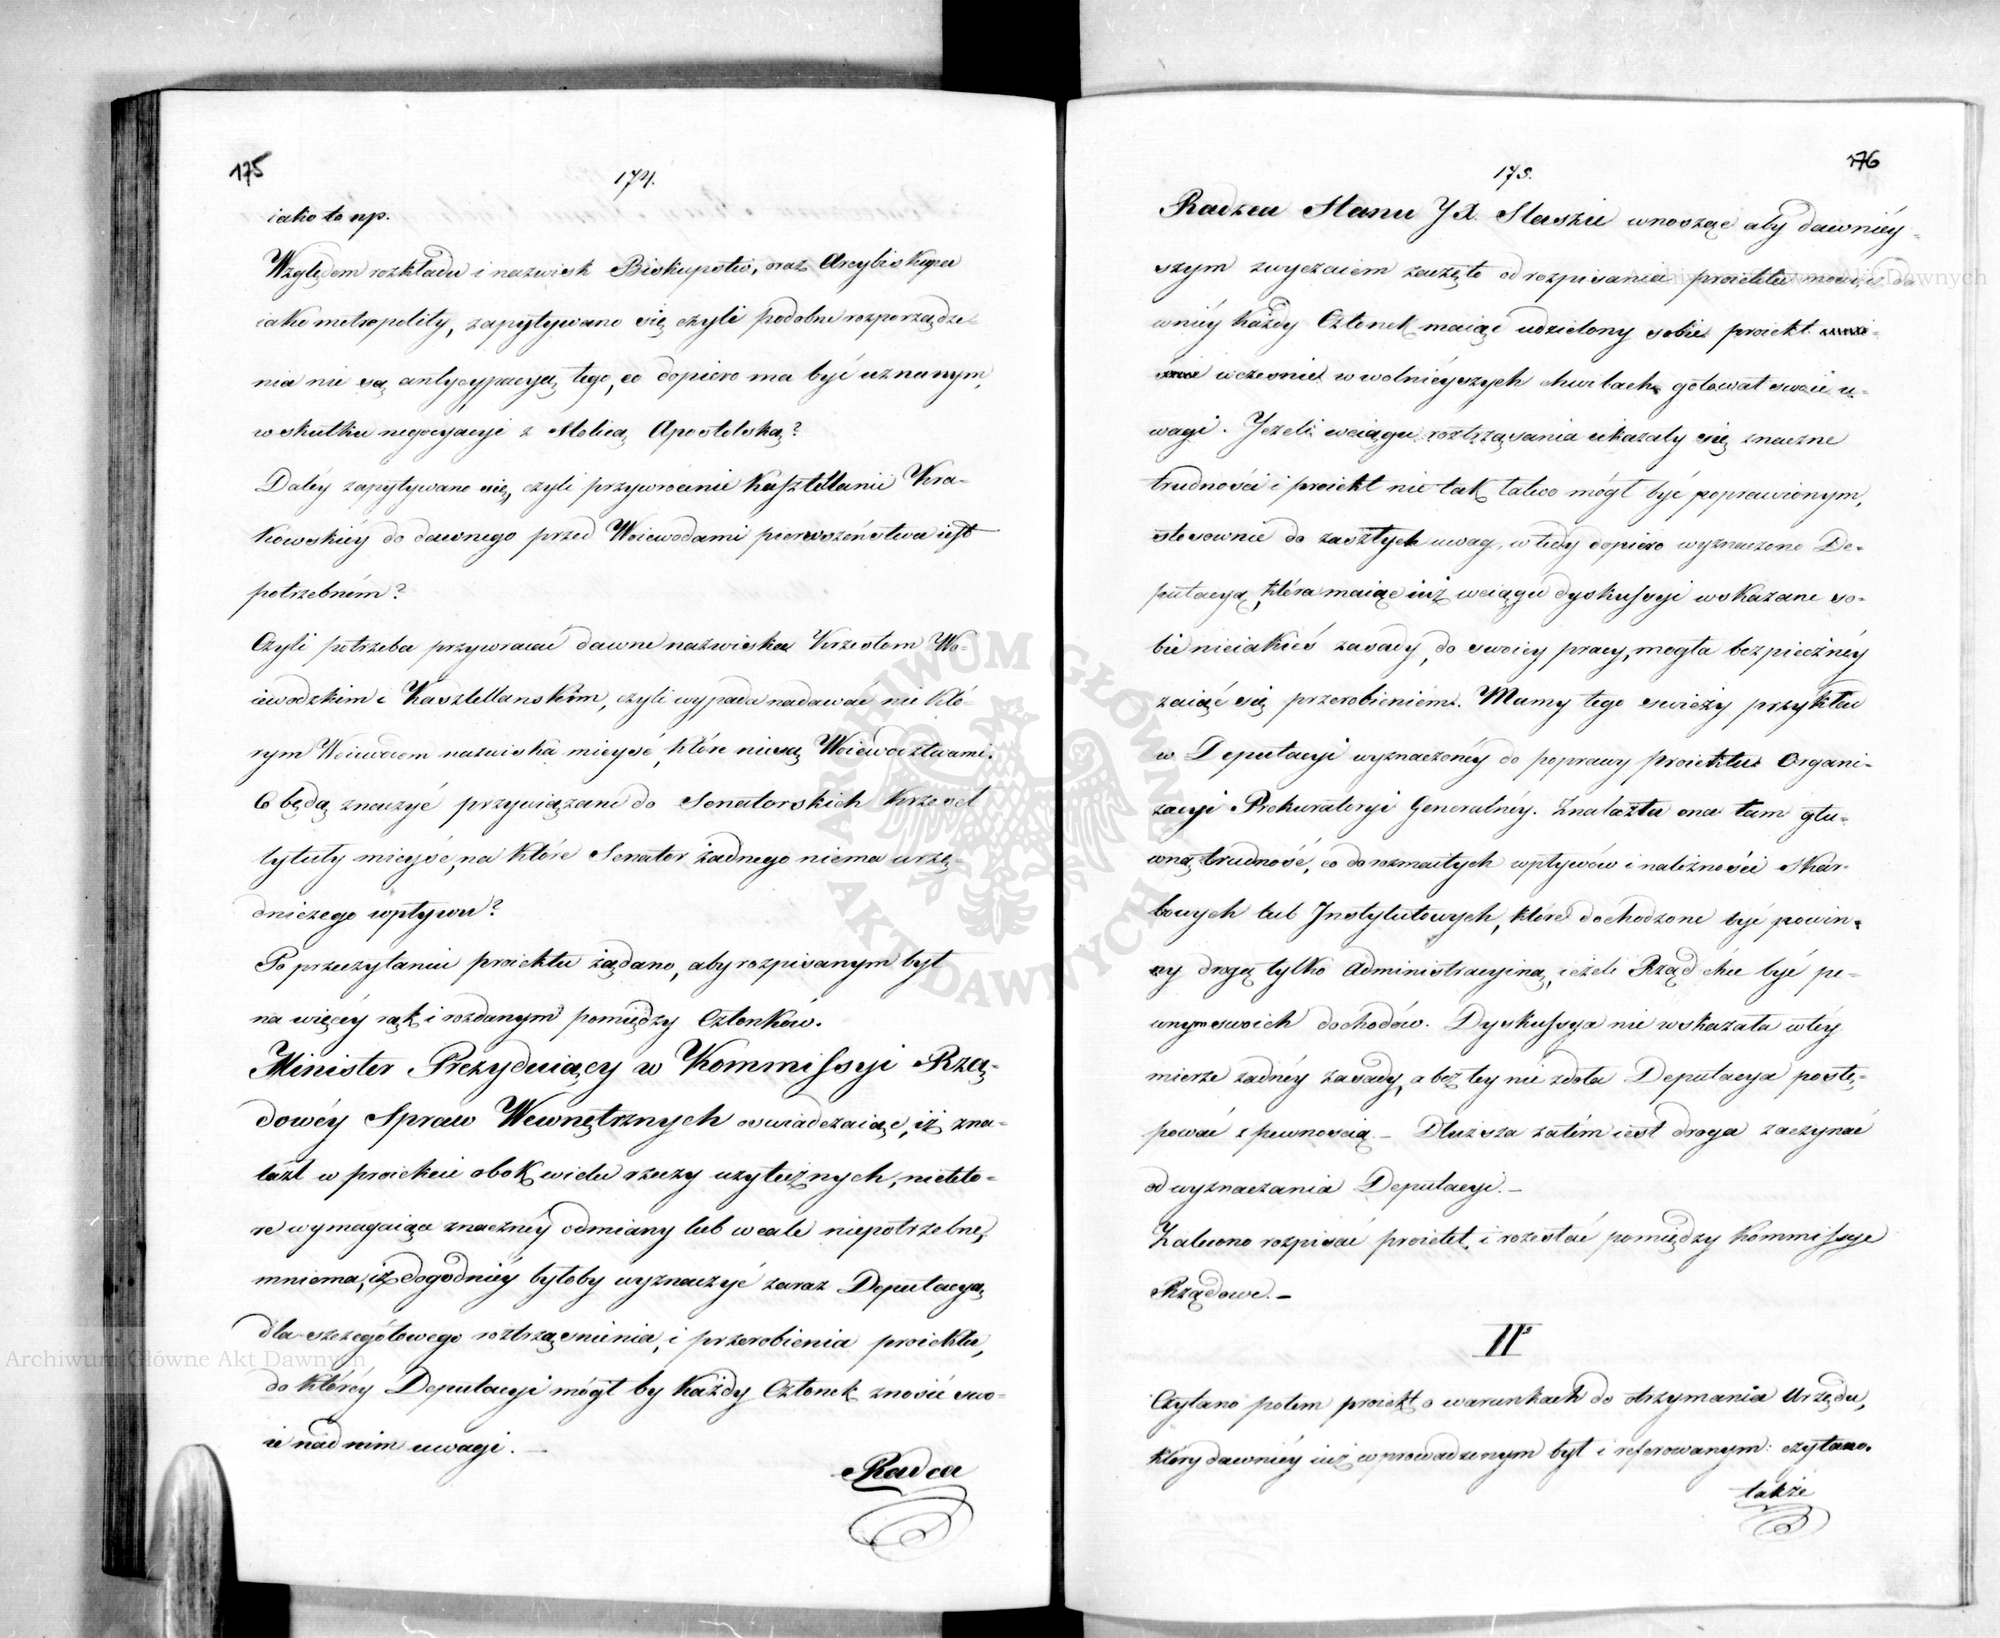 175
174.
iako to np.
Względem rozkładu i nazwisk Biskupstw, oraz Arcybiskupa
iako metropolity, zapytywano się czyli podobne rozporządze-
nia nie są antycypacyą tego, co dopiero ma być uznanym,
w skutku negocyacyi z Stolicą Apostolską?
Daléy zapytywano się, czyli przywrócenie Kasztellanii Kra-
kowskiéy do dawnego przed Woiewodami pierwszeństwa iest
potrzebném?
Czyli potrzeba przywracać dawne nazwiska Krzesłom Wo-
iewodzkim i Kasztellańskim, czyli wypada nadawać nie któ-
rym Woiewodom nazwiska mieysc, które nie są Woiewodztwami.
Co będą znaczyć przywiązane do Senatorskich Krzeseł
tytuły mieysc, na które Senator żadnego niema urzę-
dniczego wpływu?
Po przeczytaniu proiektu żądano, aby rozpisanym był
na więcéy rąk i rozdanym pomiędzy Członków.
Minister Prezyduiący w Kommissyi Rzą-
dowéy Spraw Wewnętrznych oswiadczaiąc, iż zna-
lazł w proiekcie obok wielu rzeczy użytecznych, niektó-
re wymagaiące znacznéy odmiany lub wcale niepotrzebne,
mniema, iż dogodniéy byłoby wyznaczyć zaraz Deputacyą
dla szczegółowego roztrząśnienia, i przerobienia proiektu,
do któréy Deputacyi mógł by Każdy Członek znosić swo-
ie nad nim uwagi. —
Radca
176
175.
Radzca Stanu JX. Staszic wnosząc aby dawniéy-
szym zwyczaiem zaczęto od rozpisania proiektu mówi, iż da-
wniéy Każdy Członek maiąc udzielony sobie proiekt
wcześnie w wolnieyszych chwilach gotował swoie u-
wagi. Jeżeli wciągu roztrząsania ukazały się znaczne
trudności i proiekt nie tak łatwo mógł być poprawionym,
stosownie do zaszłych uwag, wtedy dopiero wyznaczono De-
putacyą, która maiąc iuż wciągu dyskussyi wskazane so-
bie nieiakieś zasady, do swoiey pracy, mogła bezpieczniéy
zaiąć się przerobieniem. Mamy tego świeży przykład
w Deputacyi wyznaczonéy do poprawy proiektu Organi-
zacyi Prokuratoryi Generalnéy. Znalazła ona tam głó-
wną trudność, co do rozmaitych wpływów i należności Skar-
bowych lub Instytutowych, które dochodzone być powin-
ny drogą tylko Administracyiną, ieżeli Rząd chce być pe-
wnym swoich dochodów. Dyskussya nie wskazała w téy
mierze żadnéy zasady, a bez tey nie zdoła Deputacya postę-
pować z pewnością. — Dłuższa zatém iest droga zaczynać
od wyznaczania Deputacyi. —
Zalecono rozpisać proiekt, i rozesłać pomiędzy Kommissye
Rządowe. —
II°
Czytano potem proiekt o warunkach do otrzymania Urzędu,
który dawniéy iuż wprowadzonym był i referowanym: czytano
także
ARCHIWUM GŁÓWNE AKT DAWNYCH
Archiwum Główne Akt Dawnych
Archiwum Główne Akt Dawnych